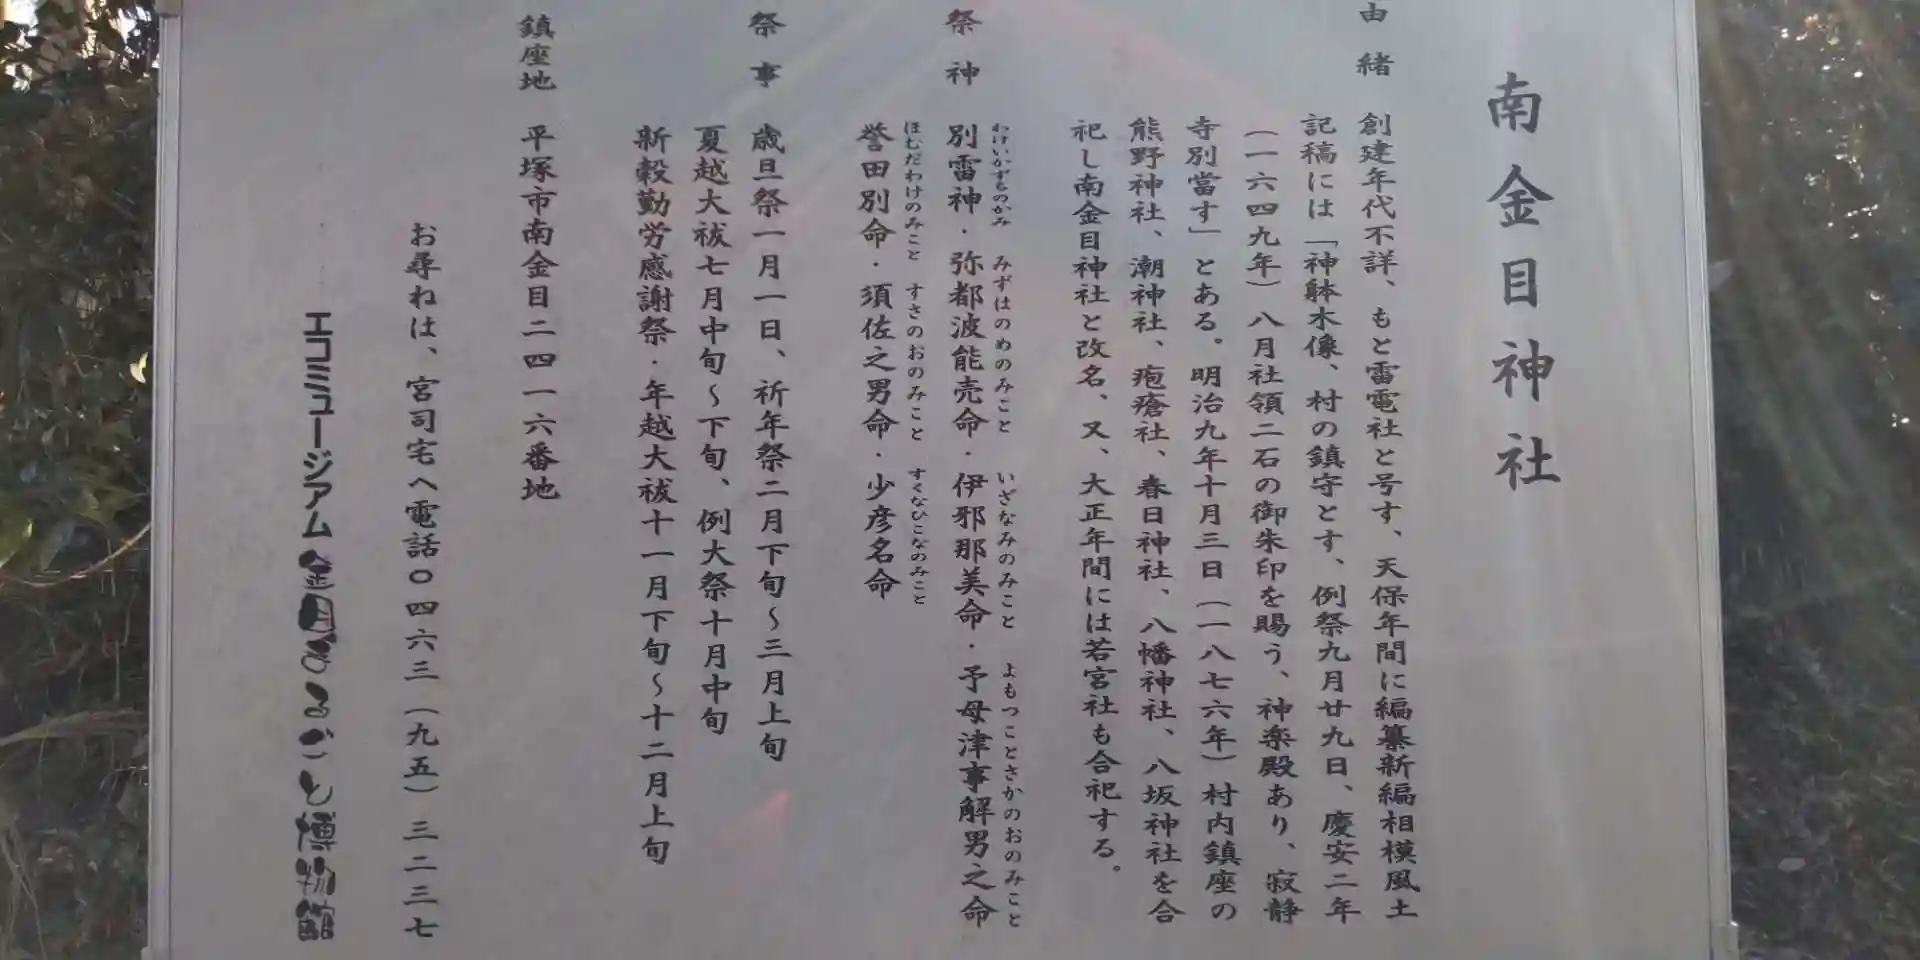 南金目神社
由緒 創建年代不詳、もと雷電社と号す、天保年間に編纂新編相模風土
記稿には「神躰木像、村の鎮守とす、例祭九月廿九日、慶安二年
(一六四九年)八月社領二石の御朱印を賜う、神楽殿あり、寂静
寺別當す」とある。明治九年十月三日(一八七六年)村内鎮座の
熊野神社、潮神社、疱瘡社、春日神社、八幡神社、八坂神社を合
祀し南金目神社と改名、又、大正年間には若宮社も合祀する。
わけいかずちのかみ みずはのめのみこと いざなみのみこと よもつことさかのおのみこと
祭神 別雷神・弥都波能売命・伊邪那美命・予母津事解男之命
ほむだわけのみこと すさのおのみこと すくなひこなのみこと
誉田別命・須佐之男命・少彦名命
祭事 歳旦祭一月一日、祈年祭二月下旬〜三月上旬
夏越大祓七月中旬〜下旬、例大祭十月中旬
新穀勤労感謝祭・年越大祓十一月下旬〜十二月上旬
鎮座地 平塚市南金目二四一六番地
お尋ねは、宮司宅へ電話〇四六三(九五)三二三七
エコミュージアム金目まるごと博物館